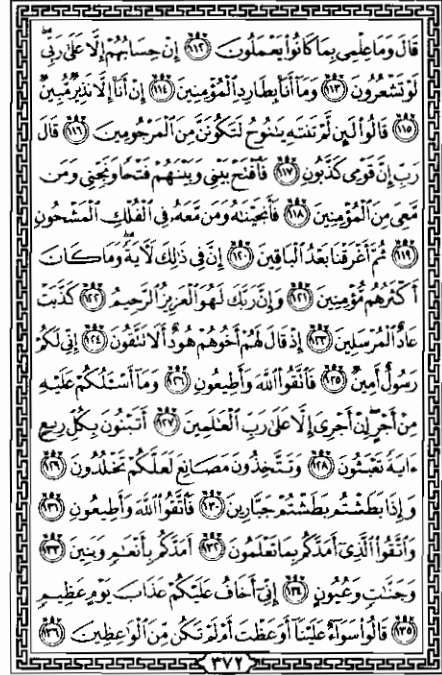 قَالَ وَمَا عِلْمِى بِمَا كَانُوا۟ يَعْمَلُونَ ١١٢ إِنْ حِسَابُهُمْ إِلَّا عَلَىٰ رَبِّى ۖ
لَوْ تَشْعُرُونَ ١١٣ وَمَآ أَنَا۠ بِطَارِدِ ٱلْمُؤْمِنِينَ ١١٤ إِنْ أَنَا۠ إِلَّا نَذِيرٌ مُّبِينٌ
١١٥ قَالُوا۟ لَئِن لَّمْ تَنتَهِ يَٰنُوحُ لَتَكُونَنَّ مِنَ ٱلْمَرْجُومِينَ ١١٦ قَالَ
رَبِّ إِنَّ قَوْمِى كَذَّبُونِ ١١٧ فَٱفْتَحْ بَيْنِى وَبَيْنَهُمْ فَتْحًا وَنَجِّنِى وَمَن
مَّعِىَ مِنَ ٱلْمُؤْمِنِينَ ١١٨ فَأَنجَيْنَٰهُ وَمَن مَّعَهُۥ فِى ٱلْفُلْكِ ٱلْمَشْحُونِ
١١٩ ثُمَّ أَغْرَقْنَا بَعْدُ ٱلْبَاقِينَ ١٢٠ إِنَّ فِى ذَٰلِكَ لَءَايَةً ۖ وَمَا كَانَ
أَكْثَرُهُم مُّؤْمِنِينَ ١٢١ وَإِنَّ رَبَّكَ لَهُوَ ٱلْعَزِيزُ ٱلرَّحِيمُ ١٢٢ كَذَّبَتْ
عَادٌ ٱلْمُرْسَلِينَ ١٢٣ إِذْ قَالَ لَهُمْ أَخُوهُمْ هُودٌ أَلَا تَتَّقُونَ ١٢٤ إِنِّى لَكُمْ
رَسُولٌ أَمِينٌ ١٢٥ فَٱتَّقُوا۟ ٱللَّهَ وَأَطِيعُونِ ١٢٦ وَمَآ أَسْـَٔلُكُمْ عَلَيْهِ
مِنْ أَجْرٍ ۖ إِنْ أَجْرِىَ إِلَّا عَلَىٰ رَبِّ ٱلْعَٰلَمِينَ ١٢٧ أَتَبْنُونَ بِكُلِّ رِيعٍ
ءَايَةً تَعْبَثُونَ ١٢٨ وَتَتَّخِذُونَ مَصَانِعَ لَعَلَّكُمْ تَخْلُدُونَ ١٢٩
وَإِذَا بَطَشْتُم بَطَشْتُمْ جَبَّارِينَ ١٣٠ فَٱتَّقُوا۟ ٱللَّهَ وَأَطِيعُونِ ١٣١
وَٱتَّقُوا۟ ٱلَّذِىٓ أَمَدَّكُم بِمَا تَعْلَمُونَ ١٣٢ أَمَدَّكُم بِأَنْعَٰمٍ وَبَنِينَ ١٣٣
وَجَنَّٰتٍ وَعُيُونٍ ١٣٤ إِنِّىٓ أَخَافُ عَلَيْكُمْ عَذَابَ يَوْمٍ عَظِيمٍ
١٣٥ قَالُوا۟ سَوَآءٌ عَلَيْنَآ أَوَعَظْتَ أَمْ لَمْ تَكُن مِّنَ ٱلْوَٰعِظِينَ ١٣٦
٣٧٢